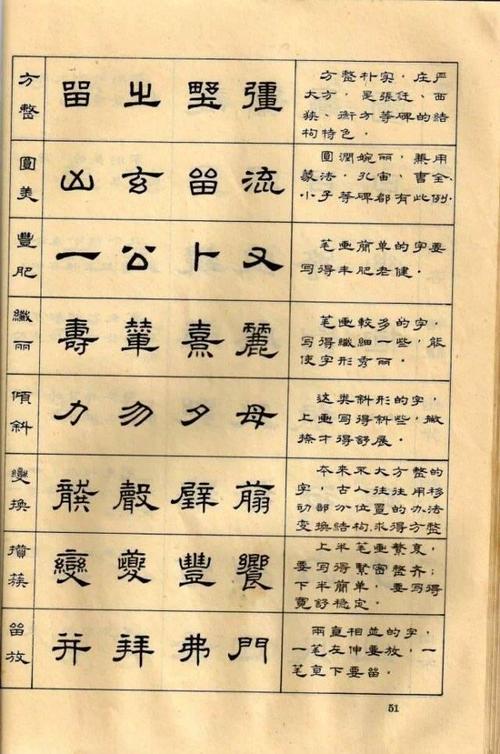 方整
留 之 野 彊
方整朴实，庄严
大方，是張迁、西
狭、衡方等碑的结
构特色。
圓美
凶 玄 留 流
圓潤婉丽，兼用
篆法，孔宙、書全、
小子等碑郡有此例
豐肥
一 公 卜 又
笔画簡单的字要
写得丰肥老健。
纖丽
壽 輦 熹 麗
笔画較多的字，
写得纖細一些，能
使字形秀丽。
傾斜
力 勿 夕 母
这类斜形的字，
上画写得斜些，撇
捺才得舒展。
變換
龔 聲 壁 蓊
本来不大方整的
字，古人往往用移
动部分位置的办法
变換结构，求得方整
攢蔟
變 夔 豐 饗
上半笔画繁衰，
要写得緊密整齐；
下半簡单，要写得
寬舒稳定。
留放
并 拜 弗 門
兩直相並的字，
一笔左伸要放，一
笔直下要留。
51